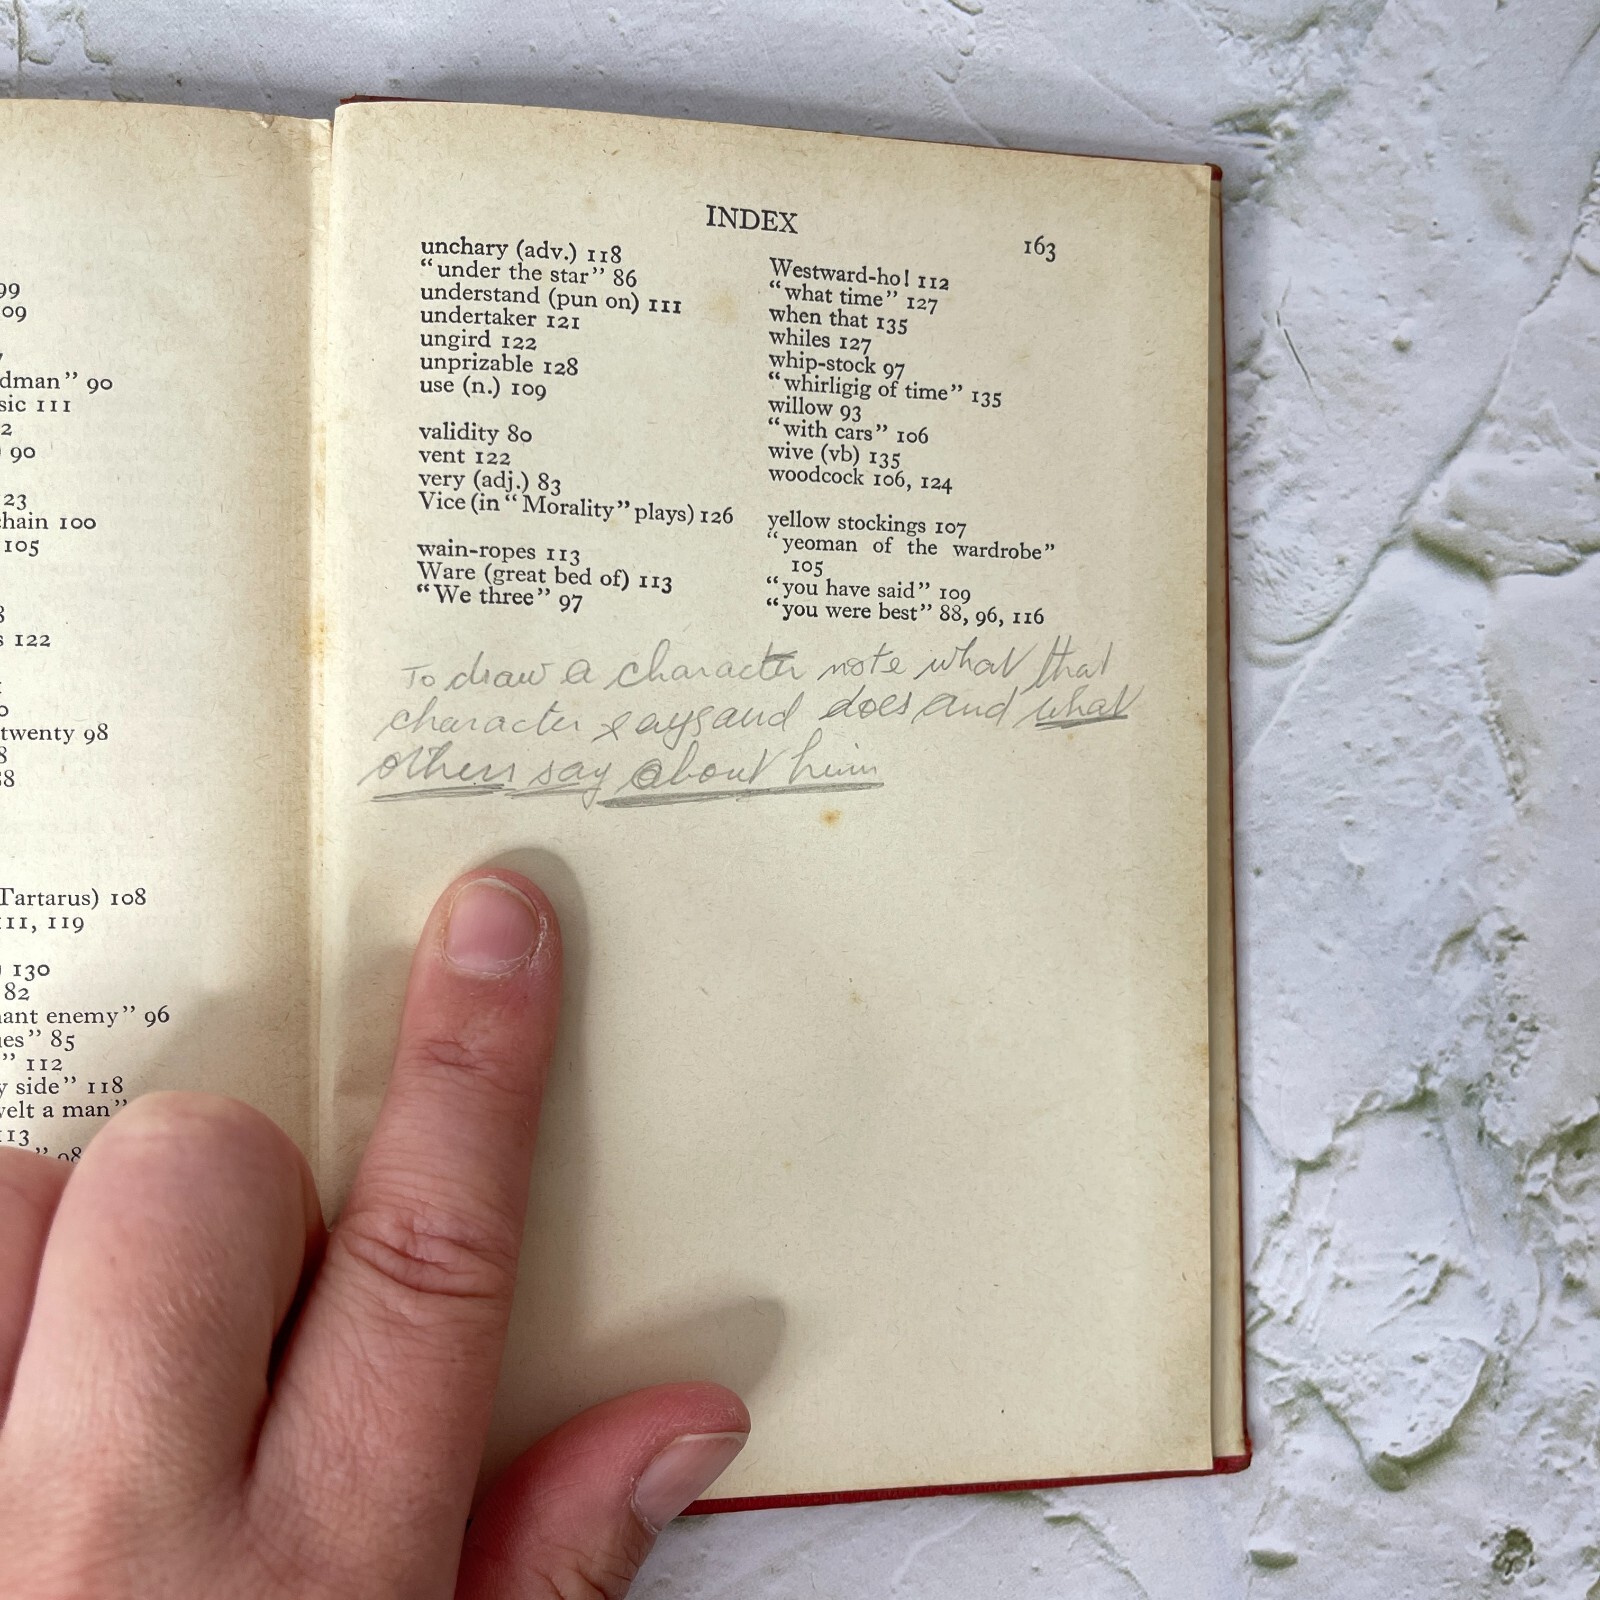 99
09
dman” 90
sic 111
2
90
23
chain 100
105
8
s 122
twenty 98
8
38
Tartarus) 108
111, 119
) 130
82
nant enemy” 96
ues” 85
” 112
y side” 118
velt a man”
113
” 98
INDEX
163
unchary (adv.) 118
“under the star” 86
understand (pun on) 111
undertaker 121
ungird 122
unprizable 128
use (n.) 109
validity 80
vent 122
very (adj.) 83
Vice (in “Morality” plays) 126
wain-ropes 113
Ware (great bed of) 113
“We three” 97
Westward-ho! 112
“what time” 127
when that 135
whiles 127
whip-stock 97
“whirligig of time” 135
willow 93
“with cars” 106
wive (vb) 135
woodcock 106, 124
yellow stockings 107
“yeoman of the wardrobe”
105
“you have said” 109
“you were best” 88, 96, 116
To draw a character note what that
character says and does and what
others say about him